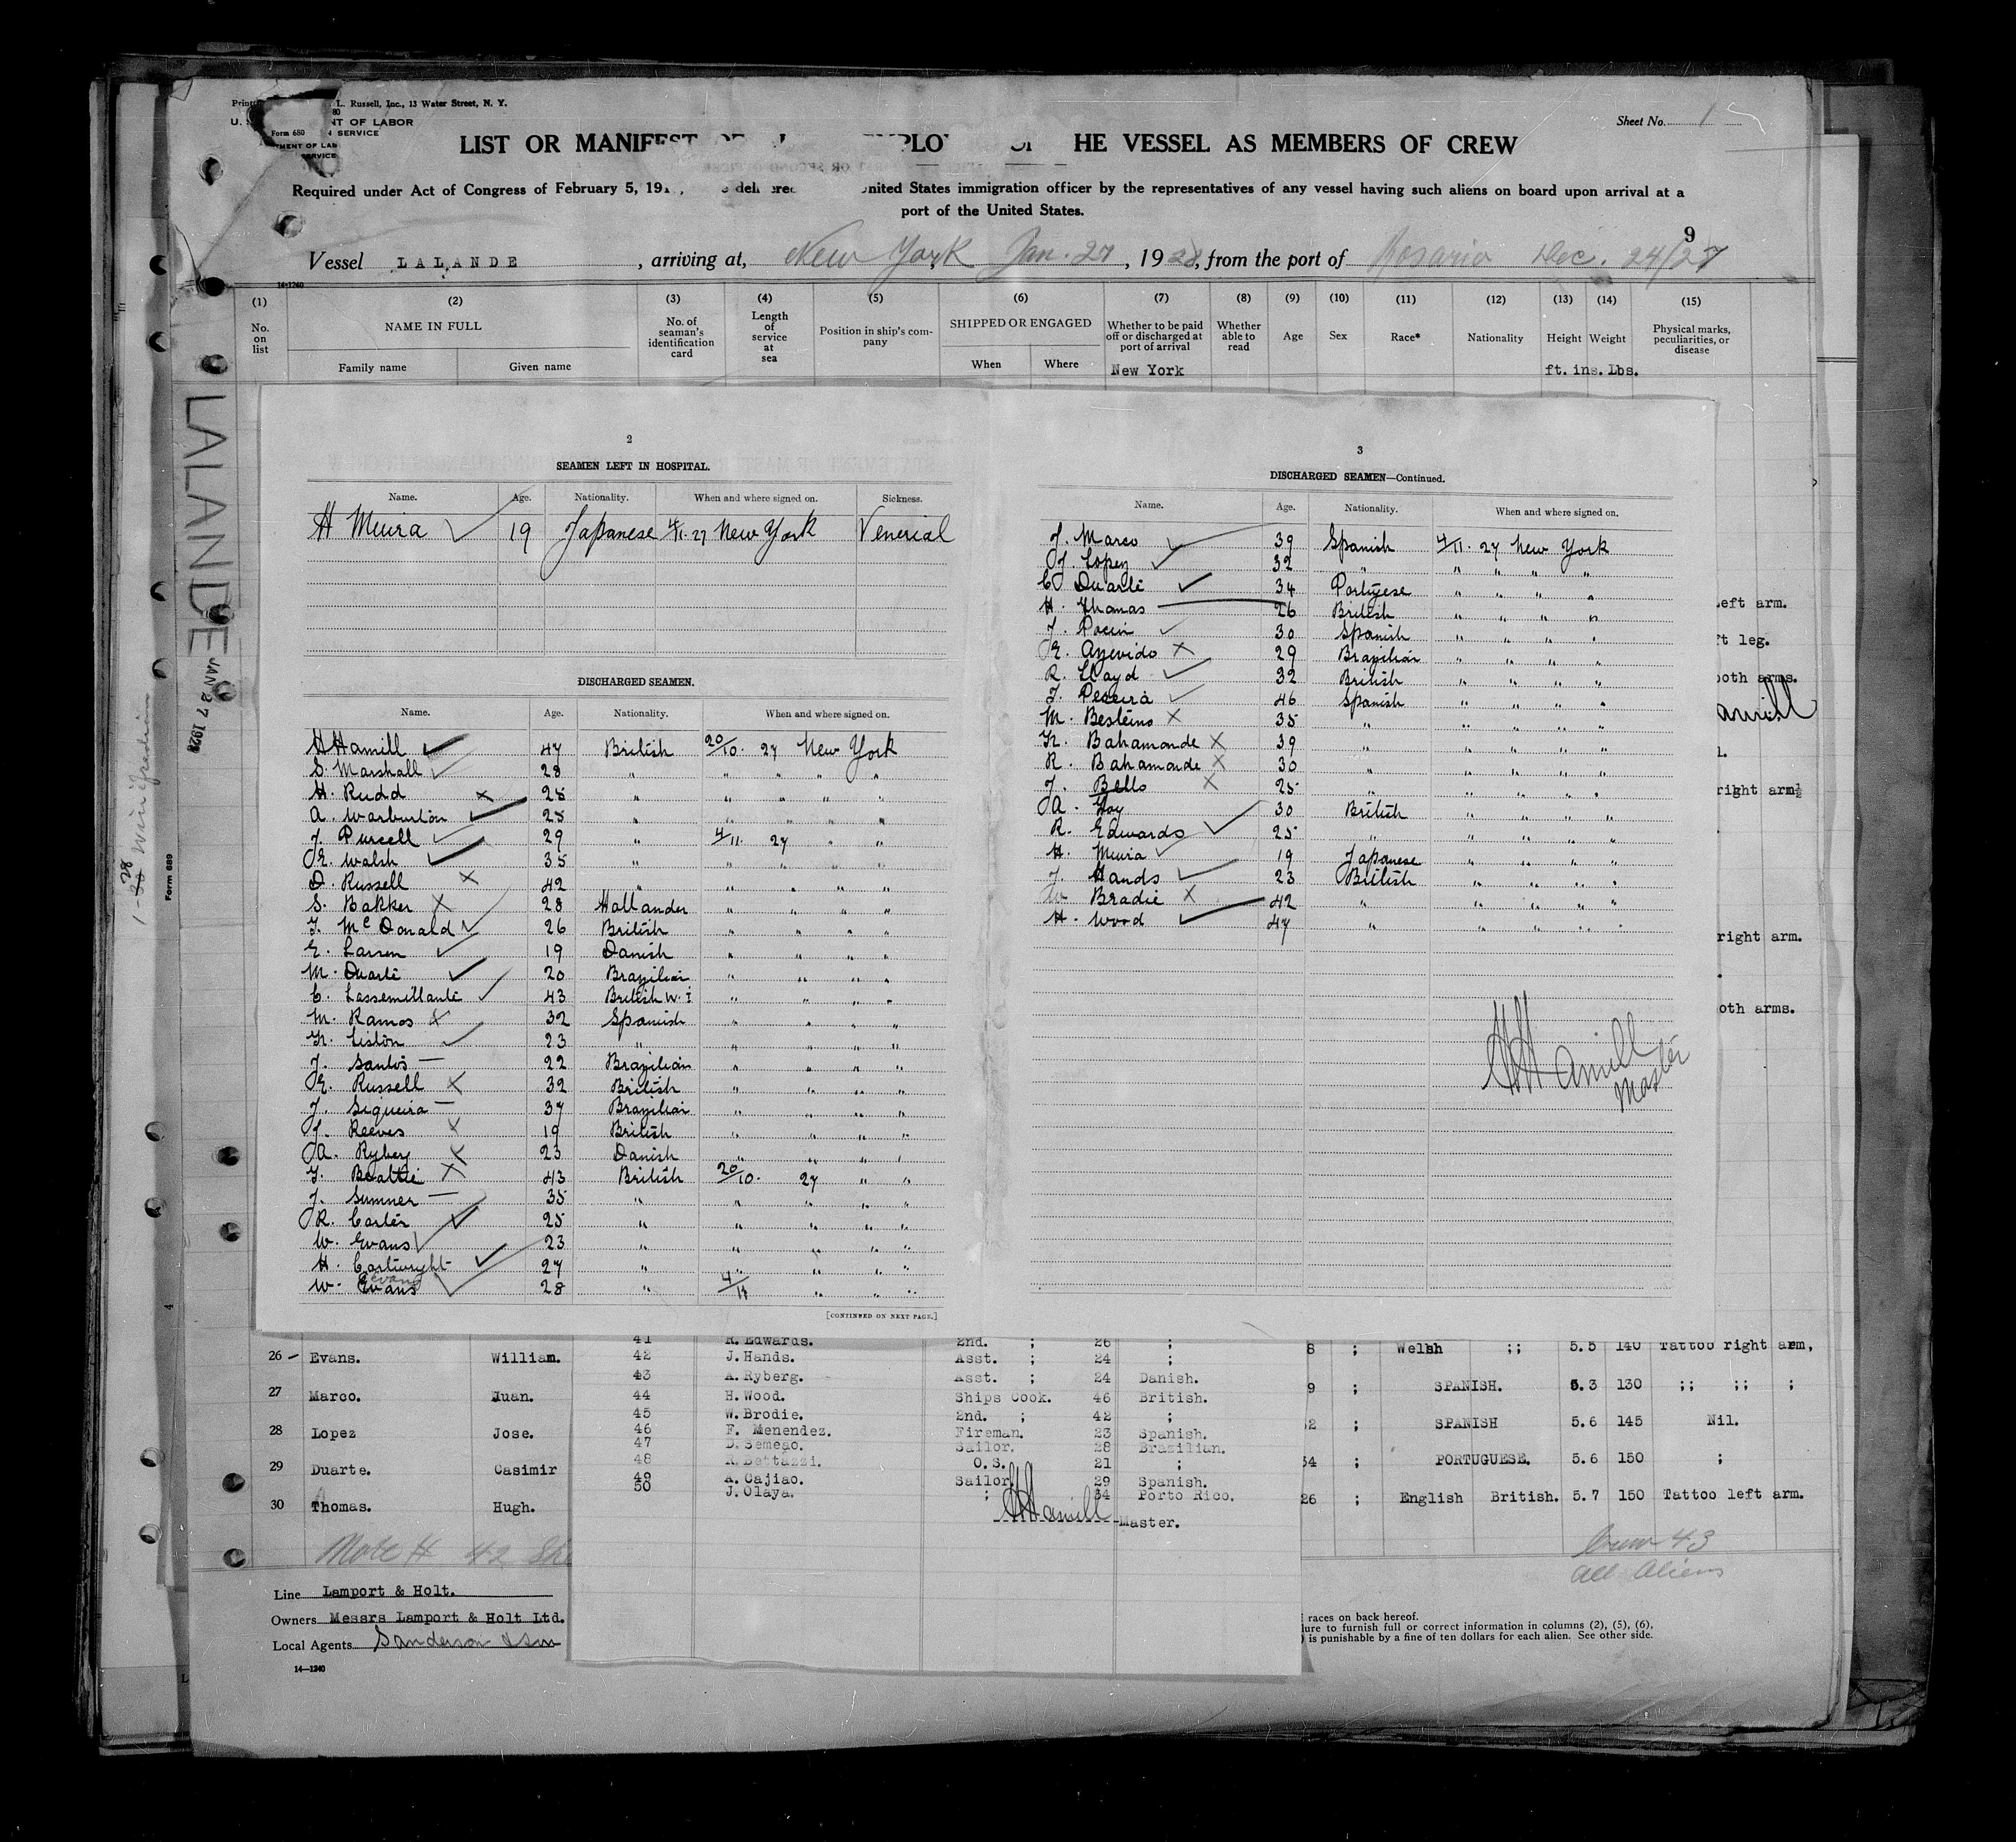 L. Russell, Inc., 13 Water Street, N. Y.
Form 680
NT OF LABOR
SERVICE
Sheet No. 1
LIST OR MANIFEST HE VESSEL AS MEMBERS OF CREW
Required under Act of Congress of February 5, 191 , nited States immigration officer by the representatives of any vessel having such aliens on board upon arrival at a
port of the United States.
9
Vessel LALANDE , arriving at, New York Jan. 27 , 1928, from the port of Rosario Dec. 24/27
14-1240
(1) (2) (3) (4) (5) (6) (7) (8) (9) (10) (11) (12) (13) (14) (15)
No. on list NAME IN FULL No. of seaman's identification card Length of service at sea Position in ship's company SHIPPED OR ENGAGED Whether to be paid off or discharged at port of arrival Whether able to read Age Sex Race* Nationality Height Weight Physical marks, peculiarities, or disease
Family name Given name When Where New York ft. ins. Lbs.
LALANDE
JAN 27 1928
Form 689
2
SEAMEN LEFT IN HOSPITAL.
Name. Age. Nationality. When and where signed on. Sickness.
H Miura 19 Japanese 4/11. 27 New York Venerial
DISCHARGED SEAMEN.
Name. Age. Nationality. When and where signed on.
H Hamill 47 British 20/10. 27 New York
S. Marshall 28 " " " " "
H. Rudd 25 " " " " "
A. Warburton 25 " " " " "
J. Purcell 29 " 4/11. 27 " "
E. Walsh 35 " " " " "
D. Russell 42 " " " " "
S. Bakker 28 Hollander " " " "
J. McDonald 26 British " " " "
E. Larsen 19 Danish " " " "
M. Duarte 20 Brazilian " " " "
C. Lassemillante 43 British W. I " " " "
M. Ramos 32 Spanish " " " "
N. Liston 23 " " " " "
J. Santos 22 Brazilian " " " "
E. Russell 32 British " " " "
J. Siqueira 37 Brazilian " " " "
J. Reeves 19 British " " " "
A. Ryberg 23 Danish " " " "
J. Beattie 43 British 20/10. 27 " "
J. Sumner 35 " " " " "
R. Carter 25 " " " " "
W. Evans 23 " " " " "
H. Cartwright 27 " " " " "
W. Evans 28 " 4/11 " " "
[CONTINUED ON NEXT PAGE.]
3
DISCHARGED SEAMEN—Continued.
Name. Age. Nationality. When and where signed on.
J. Marco 39 Spanish 4/11. 27 New York
J. Lopez 32 " " " " "
C. Duarte 34 Portugese " " " "
H. Thomas 26 British " " " "
J. Pocin 30 Spanish " " " "
E. Azevido 29 Brazilian " " " "
R. Lloyd 32 British " " " "
J. Pereira 46 Spanish " " " "
M. Besteiro 35 " " " " "
N. Bahamonde 39 " " " " "
R. Bahamonde 30 " " " " "
J. Bello 25 " " " " "
A. Foy 30 British " " " "
R. Edwards 25 " " " " "
H. Miura 19 Japanese " " " "
J. Hands 23 British " " " "
W Bradie 42 " " " " "
H. Wood 47 " " " " "
H Hamill
Master
left arm.
ft leg.
both arms.
amill
right arm½
right arm.
oth arms.
41 R. Edwards. 2nd. ; 26 ;
42 J. Hands. Asst. ; 24 ;
43 A. Ryberg. Asst. ; 24 Danish.
44 H. Wood. Ships Cook. 46 British.
45 W. Brodie. 2nd. ; 42 ;
46 F. Menendez. Fireman. 23 Spanish.
47 D. Semeao. Sailor. 28 Brazilian.
48 R. Bettazzi. O.S. 21 ;
49 A. Cajiao. Sailor. 29 Spanish.
50 J. Olaya. ; 34 Porto Rico.
H Hamill Master.
26 Evans. William. 8 ; Welsh ;; 5.5 140 Tattoo right arm,
27 Marco. Juan. 9 ; SPANISH. 5.3 130 ;; ;; ;
28 Lopez Jose. 32 ; SPANISH 5.6 145 Nil.
29 Duarte. Casimir 34 ; PORTUGUESE. 5.6 150 ;
30 Thomas. Hugh. 26 ; English British. 5.7 150 Tattoo left arm.
Crew 43
All Aliens
Line Lamport & Holt.
Owners Messrs Lamport & Holt Ltd.
Local Agents Sanderson & Son
14—1240
races on back hereof.
lure to furnish full or correct information in columns (2), (5), (6),
) is punishable by a fine of ten dollars for each alien. See other side.